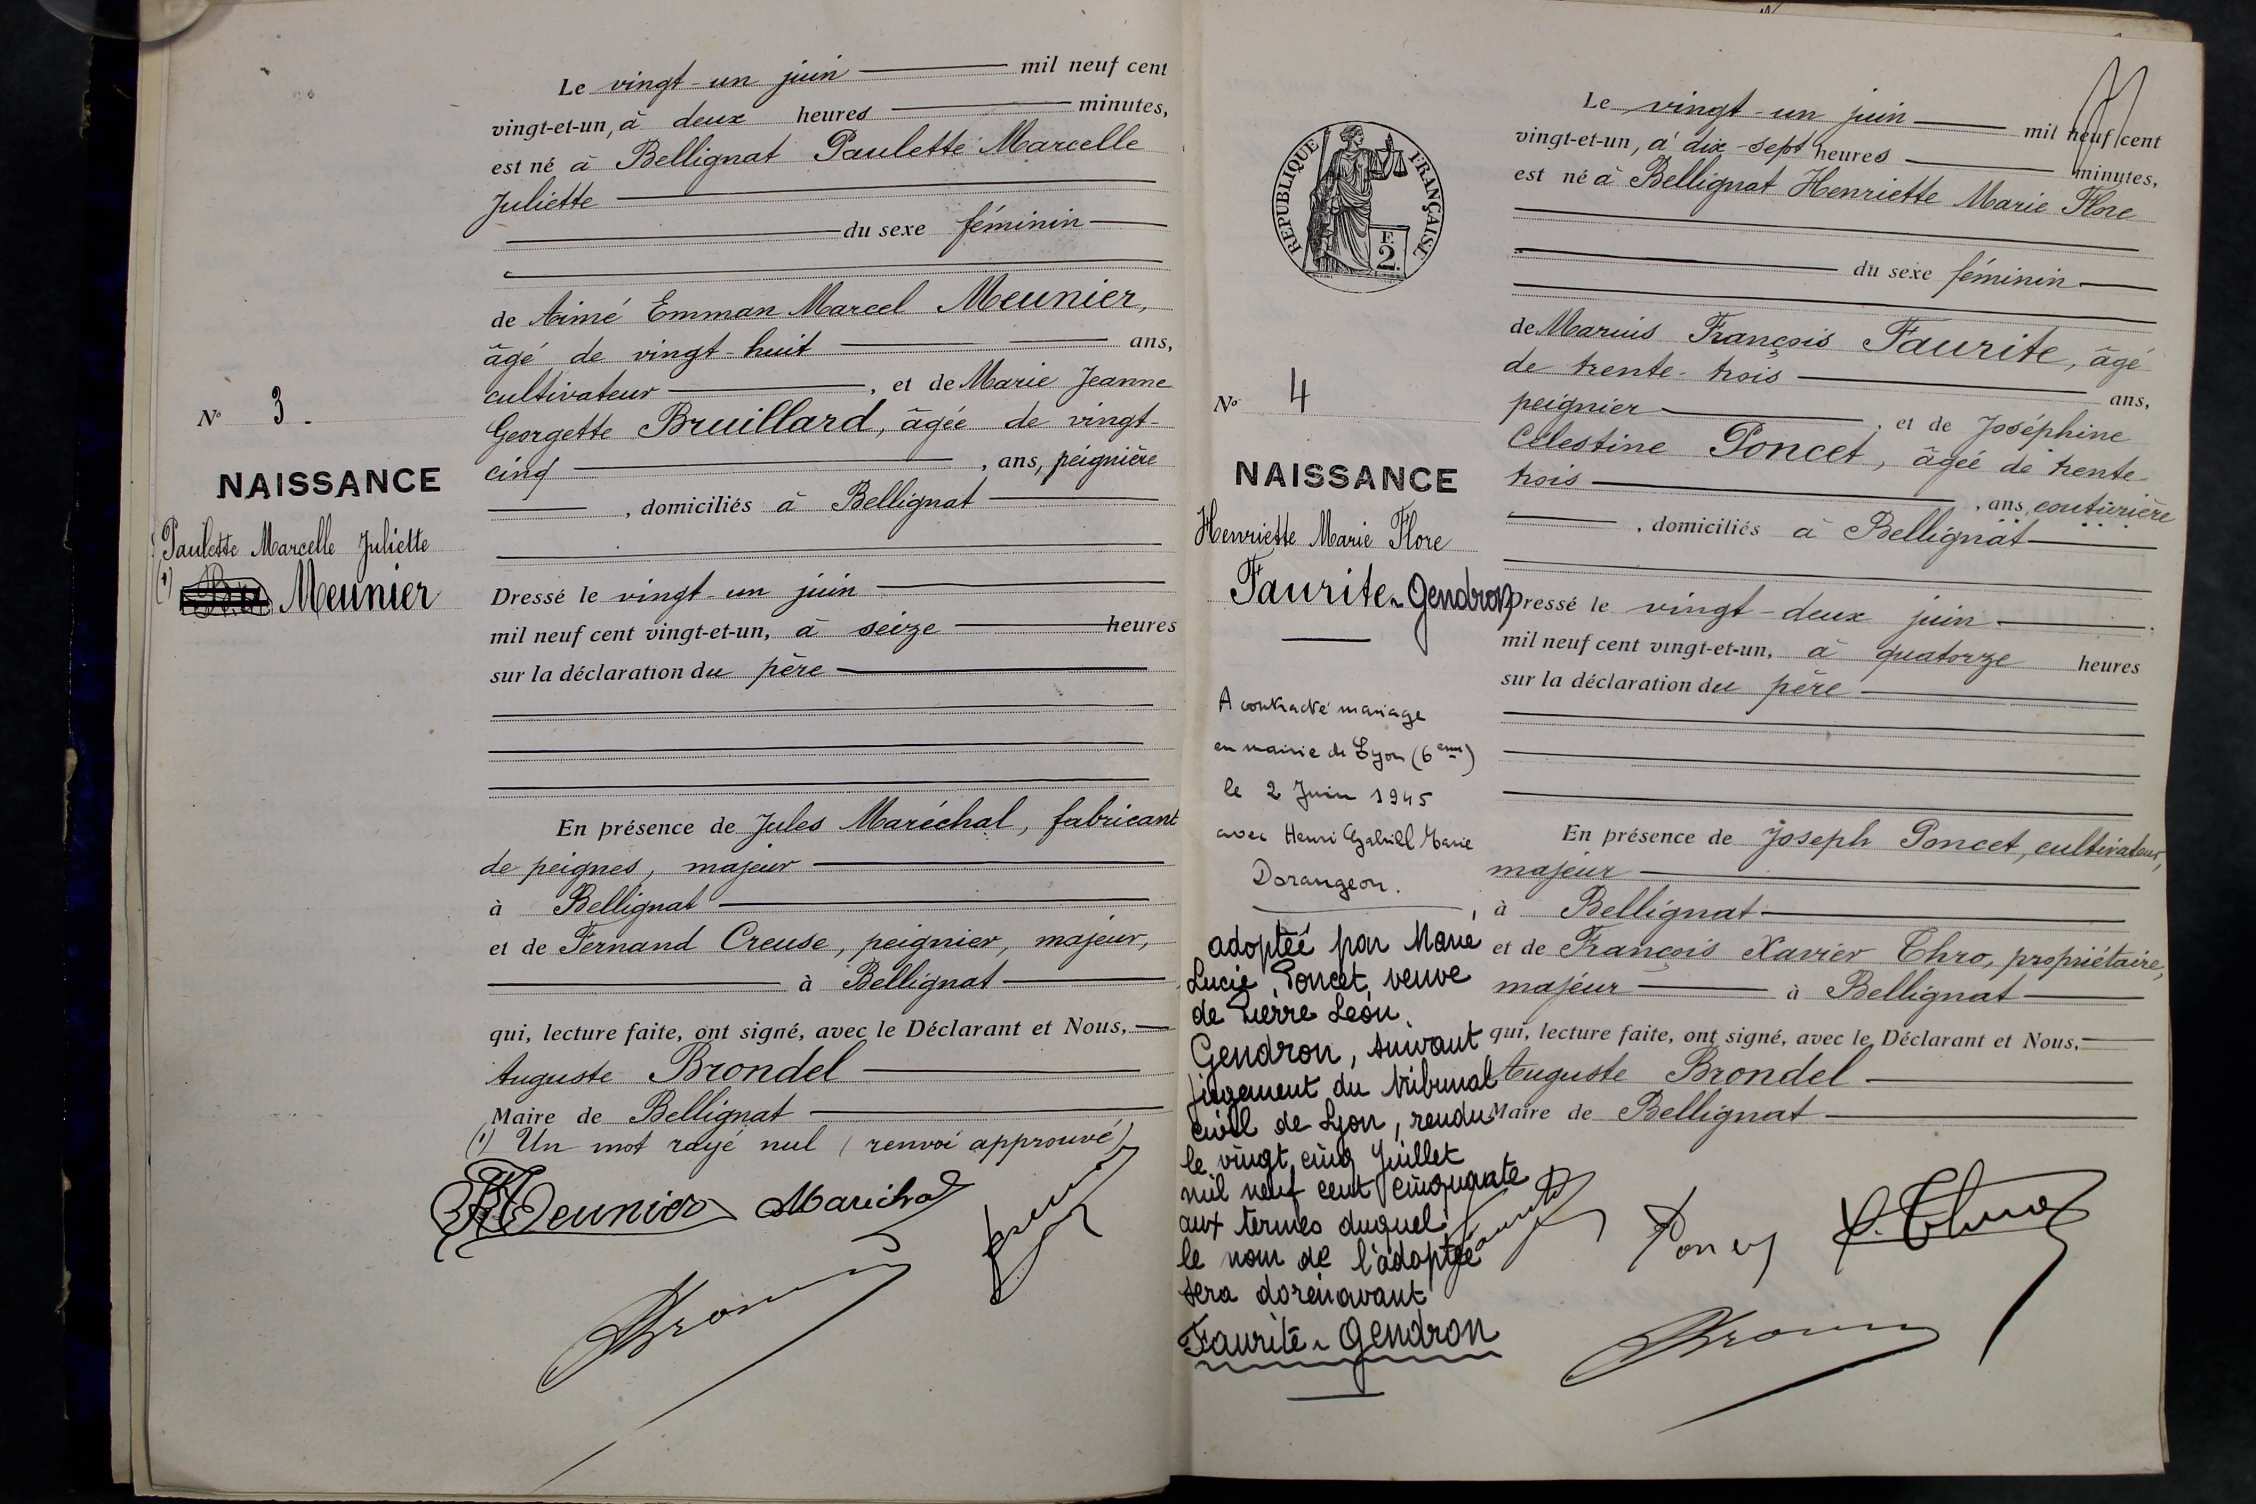 Le vingt-un juin mil neuf cent
vingt-et-un, à deux heures minutes,
est né à Bellignat Paulette Marcelle
Juliette
du sexe féminin
de Aimé Emman Marcel Meunier,
âgé de vingt-huit ans,
cultivateur, et de Marie Jeanne
Georgette Bruillard, âgée de vingt-
cinq, ans, peignière
, domiciliés à Bellignat
Dressé le vingt-un juin
mil neuf cent vingt-et-un, à seize heures
sur la déclaration du père
En présence de Jules Maréchal, fabricant
de peignes, majeur
à Bellignat
et de Fernand Creuse, peignier, majeur,
à Bellignat
qui, lecture faite, ont signé, avec le Déclarant et Nous,
Auguste Brondel
Maire de Bellignat
(1) Un mot rayé nul (renvoi approuvé)
Meunier Maréchal
N° 3.
NAISSANCE
Paulette Marcelle Juliette
(1) Meunier
RÉPUBLIQUE FRANÇAISE
F.
2.
N° 4
NAISSANCE
Henriette Marie Flore
Faurite-Gendron
A contracté mariage
en mairie de Lyon (6eme)
le 2 Juin 1945
avec Henri Gabriel Marie
Dorangeon.
adoptée par Marie
Lucie Poncet, veuve
de Pierre Léon
Gendron, suivant
jugement du tribunal
civil de Lyon, rendu
le vingt cinq Juillet
mil neuf cent cinquante
aux termes duquel
le nom de l'adoptée
sera dorénavant
Faurite-Gendron
Le vingt-un juin mil neuf cent
vingt-et-un, à dix-sept heures minutes,
est né à Bellignat Henriette Marie Flore
du sexe féminin
de Marius François Faurite, âgé
de trente-trois ans,
peignier, et de Joséphine
Célestine Poncet, âgée de trente-
trois, ans, couturière
, domiciliés à Bellignat
Dressé le vingt-deux juin
mil neuf cent vingt-et-un, à quatorze heures
sur la déclaration du père
En présence de Joseph Poncet, cultivateur,
majeur
à Bellignat
et de François Xavier Thro, propriétaire,
majeur à Bellignat
qui, lecture faite, ont signé, avec le Déclarant et Nous,
Auguste Brondel
Maire de Bellignat
Faurite Poncet